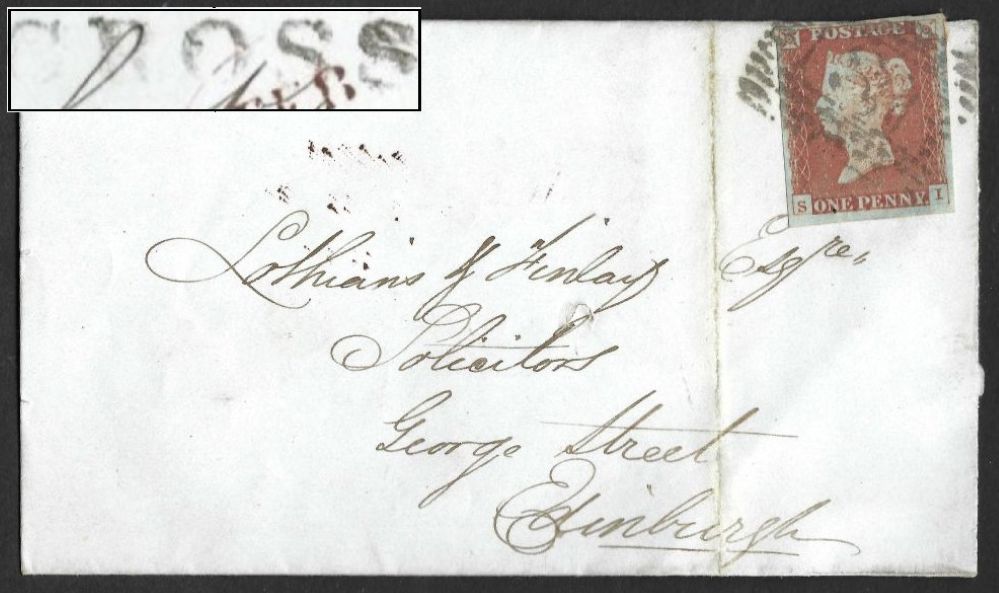 CROSS
POSTAGE
S I
ONE PENNY
Lothians & Finlay Esqre,,
Solicitors
George Street
Edinburgh